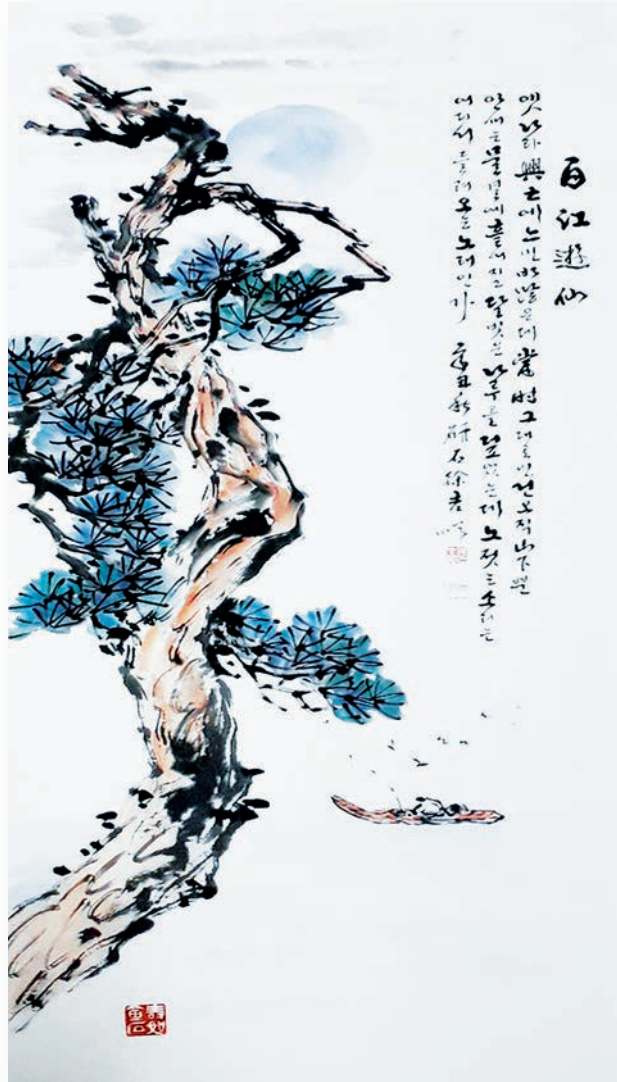 白江遊仙
옛나라 興亡에 느낀 바 많은데 當時 그대로인 건 오직 山下뿐
안개는 물결에 흩어지고 달빛은 나루를 덮었는데 노젓는 소리는
어디서 들려오는 노래인가 辛丑秋 硏石 徐君
壽如金石